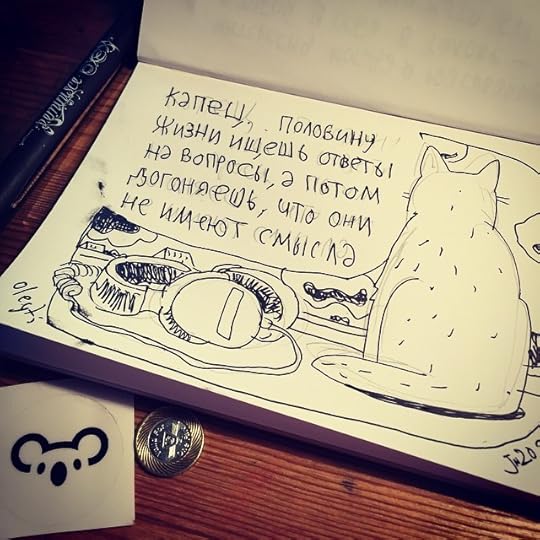 капец, половину
жизни ищешь ответы
на вопросы, а потом
догоняешь, что они
не имеют смысла